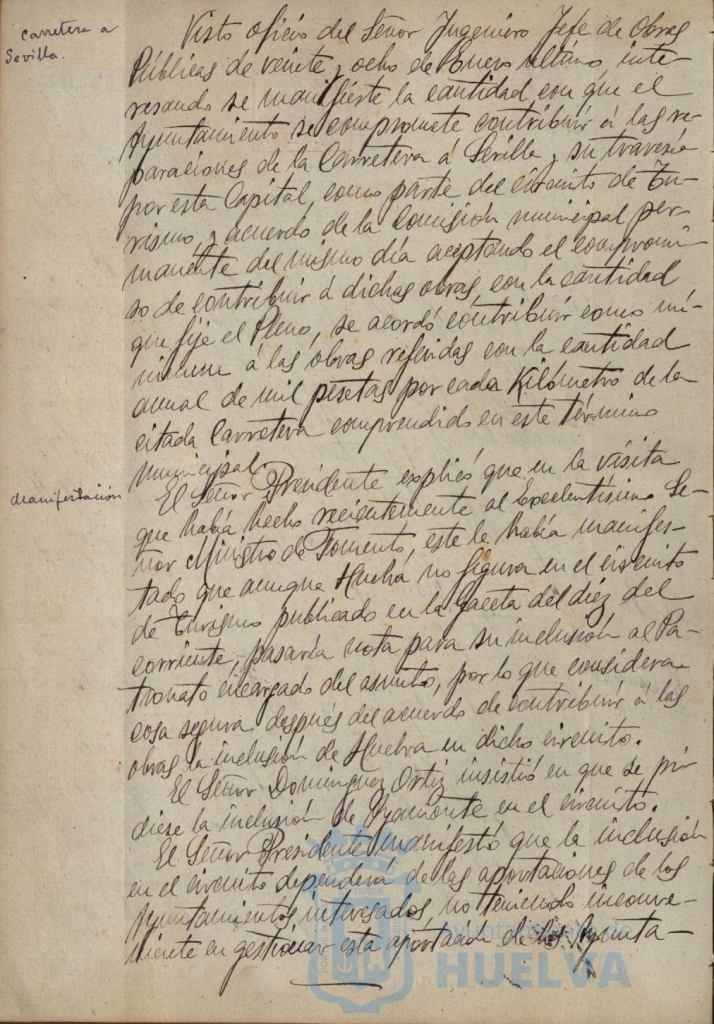 carretera a
Sevilla.
Visto oficio del Señor Ingeniero Jefe de Obras
Públicas de veinte y ocho de Enero último, inte-
resando se manifieste la cantidad con que el
Ayuntamiento se compromete contribuir á las re-
paraciones de la Carretera á Sevilla y su travesía
por esta Capital, como parte del circuito de Tu-
rismo, y acuerdo de la Comisión municipal per-
manente del mismo día aceptando el compromi-
so de contribuir á dichas obras con la cantidad
que fije el Pleno, se acordó contribuir como mí-
nimum á las obras referidas con la cantidad
anual de mil pesetas por cada Kilómetro de la
citada Carretera comprendido en este término
municipal.
Manifestación
El Señor Presidente explicó que en la visita
que había hecho recientemente al Excelentísimo Se-
ñor Ministro de Fomento, este le había manifes-
tado que aunque Huelva no figura en el circuito
de Turismo publicado en la Gaceta del diez del
corriente, pasaría nota para su inclusión al Pa-
tronato encargado del asunto, por lo que considera
cosa segura después del acuerdo de contribuir á las
obras la inclusión de Huelva en dicho circuito.
El Señor Dominguez Ortiz insistió en que se pi-
diese la inclusión de Ayamonte en el circuito.
El Señor Presidente manifestó que la inclusión
en el circuito dependerá de las aportaciones de los
Ayuntamientos interesados, no teniendo inconve-
niente en gestionar esta aportación de los Ayunta-
HUELVA